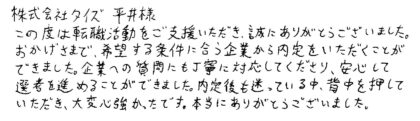 株式会社タイズ 平井様
この度は転職活動をご支援いただき、誠にありがとうございました。
おかげさまで、希望する条件に合う企業から内定をいただくことが
できました。企業への質問にも丁寧に対応してくださり、安心して
選考を進めることができました。内定後も迷っている中、背中を押して
いただき、大変心強かったです。本当にありがとうございました。